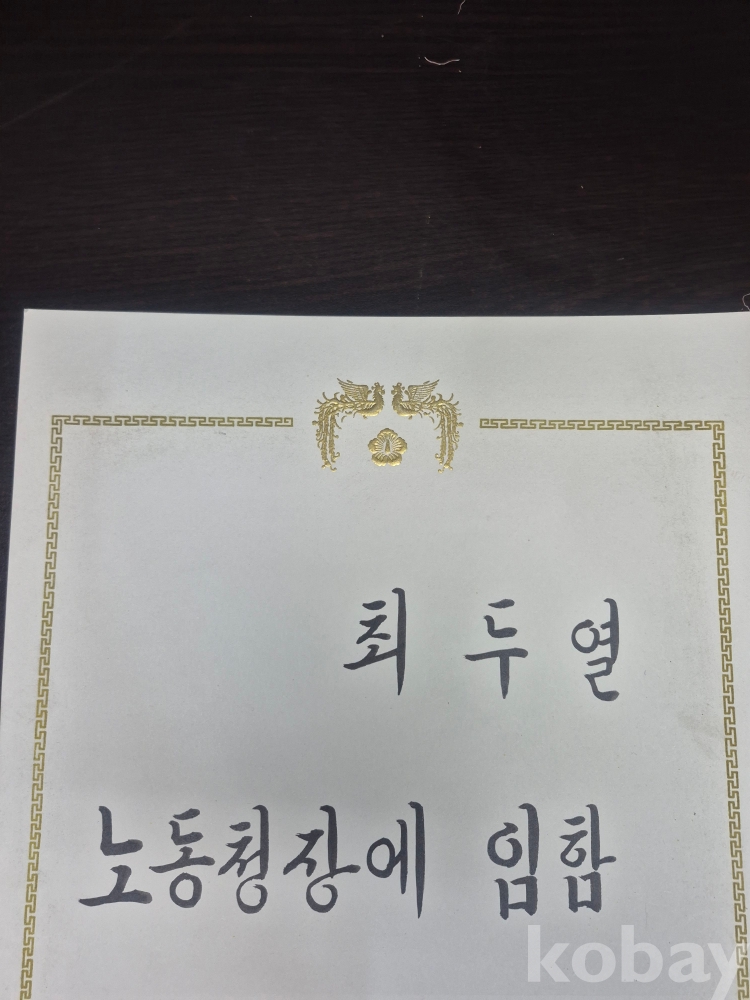 최 두 열
노동청장에 임함
kobay